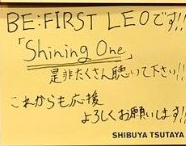 BE:FIRST LEOです!!
「Shining One」
是非たくさん聴いて下さい!!
これからも応援
よろしくお願いします!!
SHIBUYA TSUTAYA